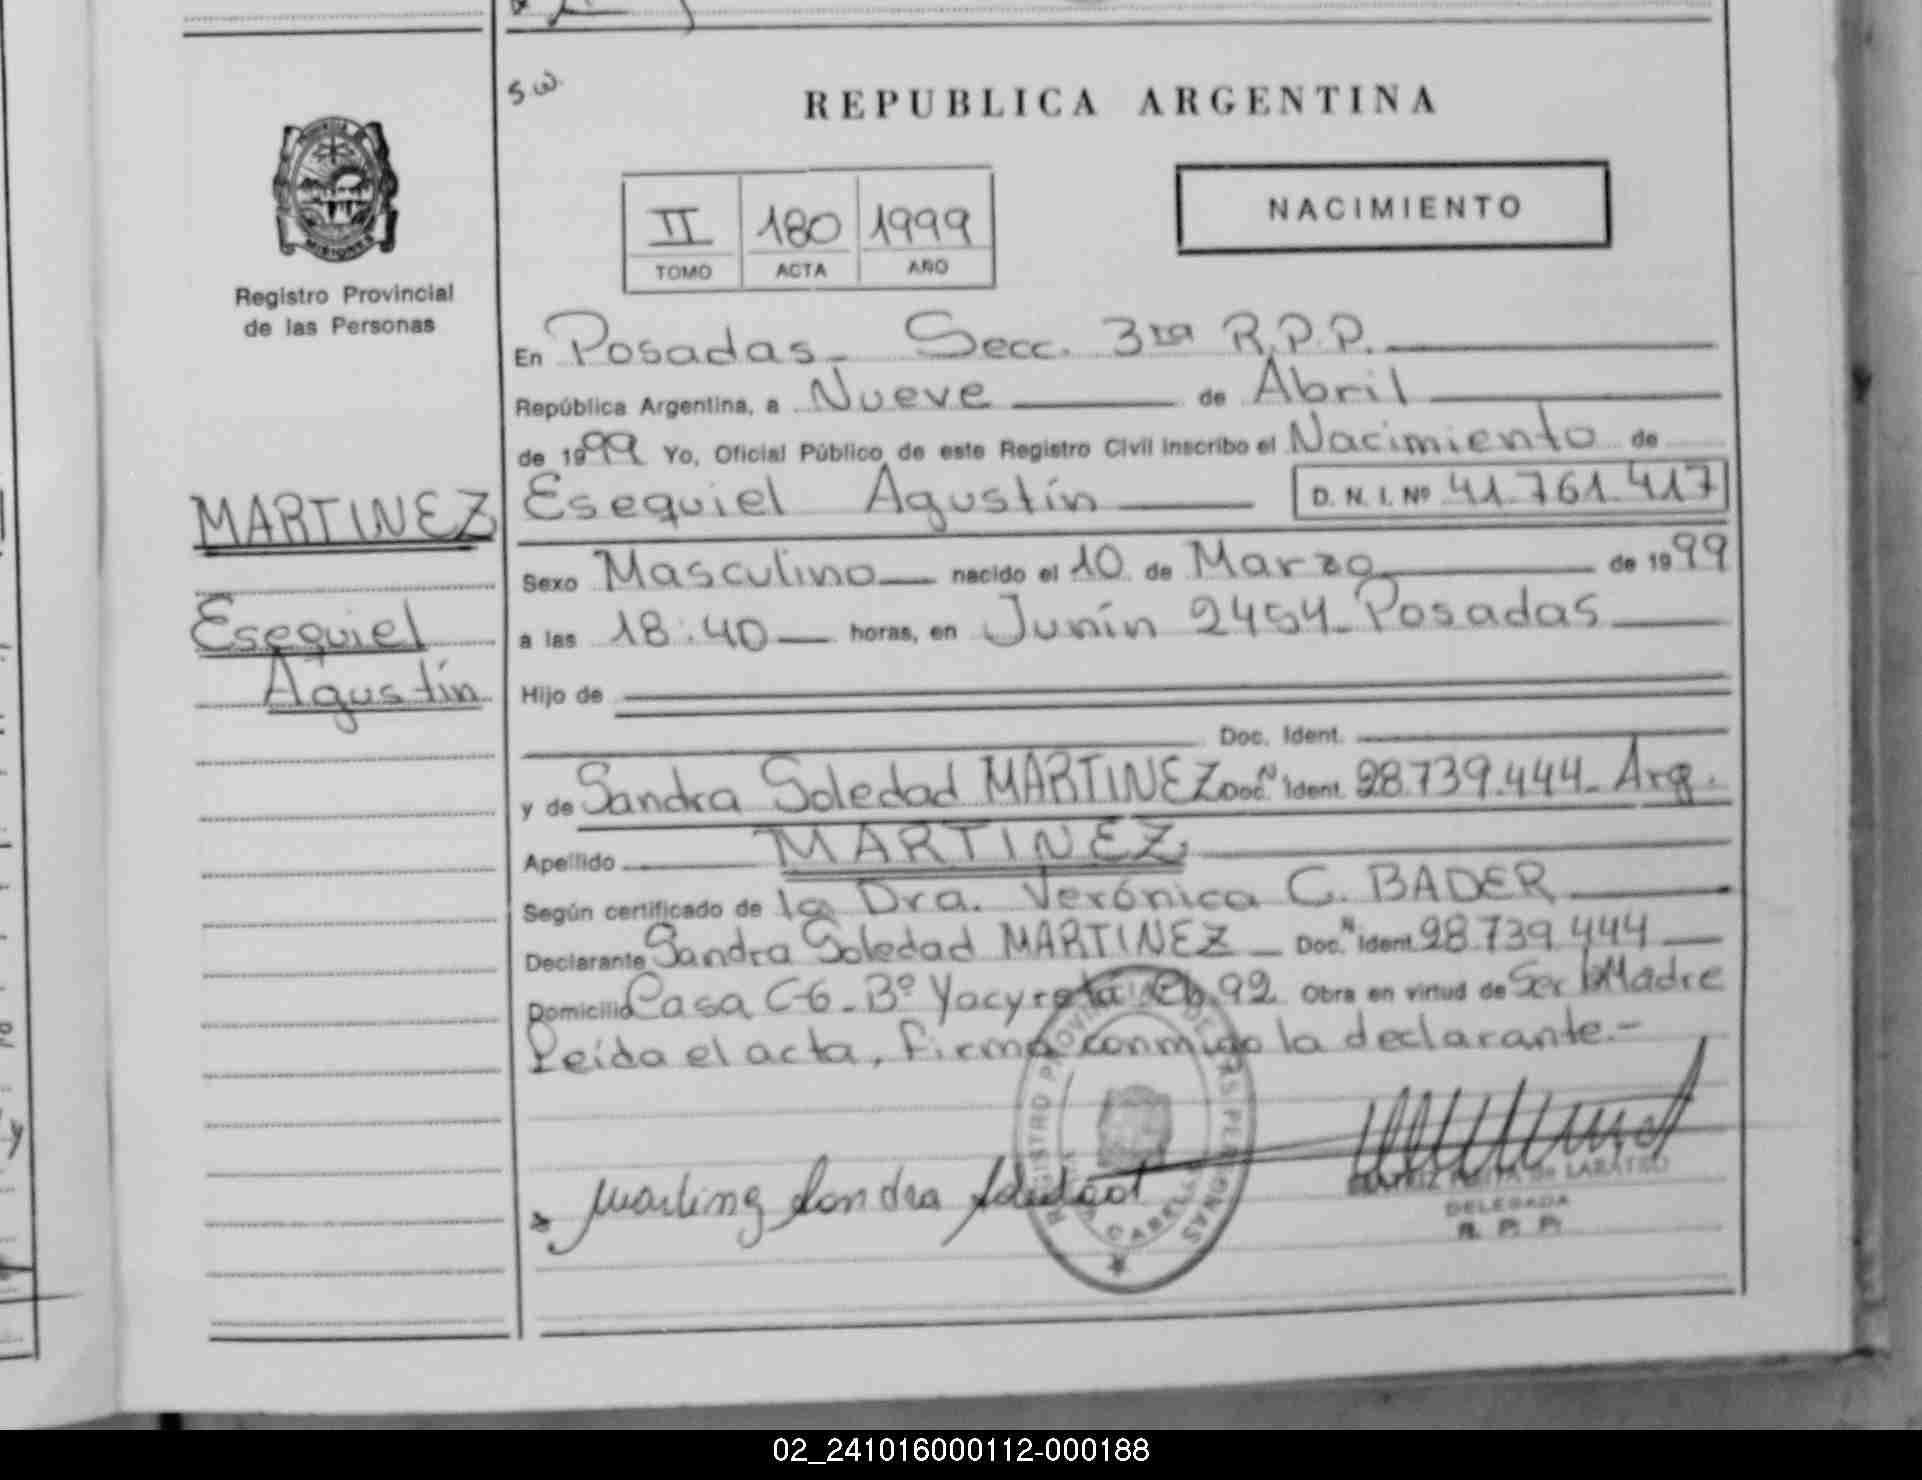 S.W.
REPUBLICA ARGENTINA
MISIONES
Registro Provincial
de las Personas
NACIMIENTO
II 180 1999
TOMO ACTA AÑO
En Posadas - Secc. 3ra R.P.P.
República Argentina, a Nueve de Abril
de 1999 Yo, Oficial Público de este Registro Civil inscribo el Nacimiento de
MARTINEZ
Esequiel Agustín D. N. I. Nº 41.761.417
Sexo Masculino nacido el 10 de Marzo de 1999
Esequiel
a las 18:40 horas, en Junín 2454 - Posadas
Agustín
Hijo de
Doc. Ident.
y de Sandra Soledad MARTINEZ Doc. N Ident. 28.739.444 - Arg.
Apellido MARTINEZ
Según certificado de la Dra. Verónica C. BADER
Declarante Sandra Soledad MARTINEZ - Doc. N Ident. 28.739.444
Domicilio Casa C-6 - Bº Yacyreta Ch. 92 Obra en virtud de Ser la Madre
Leída el acta, firma conmigo la declarante.-
REGISTRO PROVINCIAL DE LAS PERSONAS
Martinez Sandra Soledad
DELEGADA
R. P. P.
02_241016000112-000188